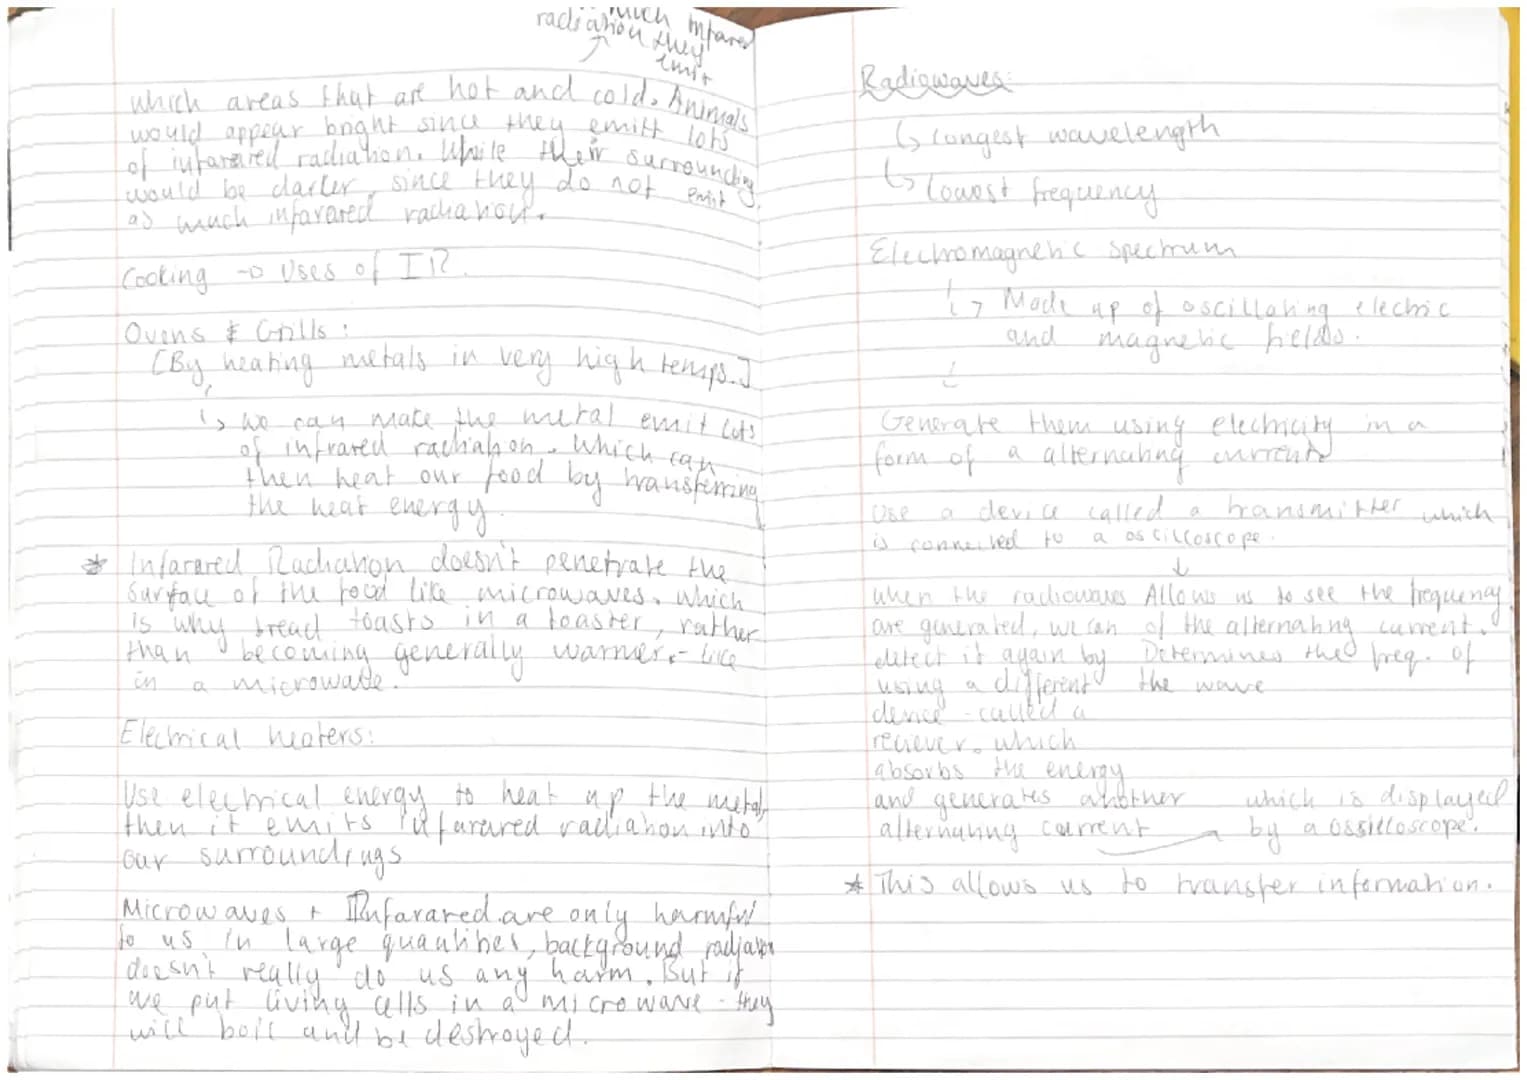 which infared
radiation they
emit
which areas that are hot and cold. Animals
would appear bright since they emitt lots
of infarared radiation. While their surrounding
would be darker, since they do not emit
as much infarared radiation.
Cooking → Uses of IR.
Ovens & Grills:
[By heating metals in very high temps.]
↳ we can make the metal emit lots
of infrared radiation. Which can
then heat our food by transferring
the heat energy.
* Infarared Radiation doesn't penetrate the
surface of the food like microwaves. Which
is why bread toasts in a toaster, rather
than becoming generally warmer - like
in a microwave.
Electrical heaters:
Use electrical energy to heat up the metal,
then it emits infarared radiation into
our surroundings
Microwaves + Infarared are only harmful
to us in large quantities, background radiation
doesn't really do us any harm. But if
we put living cells in a microwave - they
will boil and be destroyed.
Radiowaves:
↳ Longest wavelength
↳ Lowest frequency
Electromagnetic spectrum
↳ Made up of oscillating electric
and magnetic fields.
↓
Generate them using electricity in a
form of a alternating current
Use a device called a transmitter which
is connected to a oscilloscope.
↓
when the radiowaves
are generated, we can
detect it again by
using a different
device - called a
reciever. which
absorbs the energy
and generates another
alternating current →
Allows us to see the frequency
of the alternating current.
Determines the freq. of
the wave
which is displayed
by a ossilloscope.
* This allows us to transfer information.